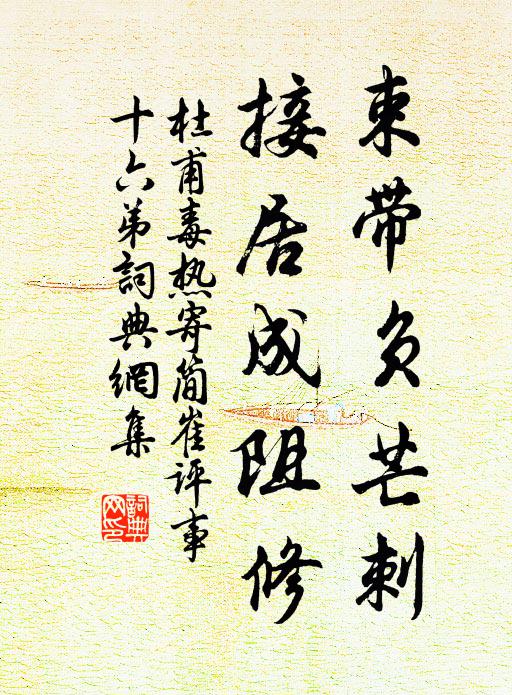 束带负芒刺
接居成阻修
杜甫毒热寄简崔评事
十六弟詞典網集
詞典
网印